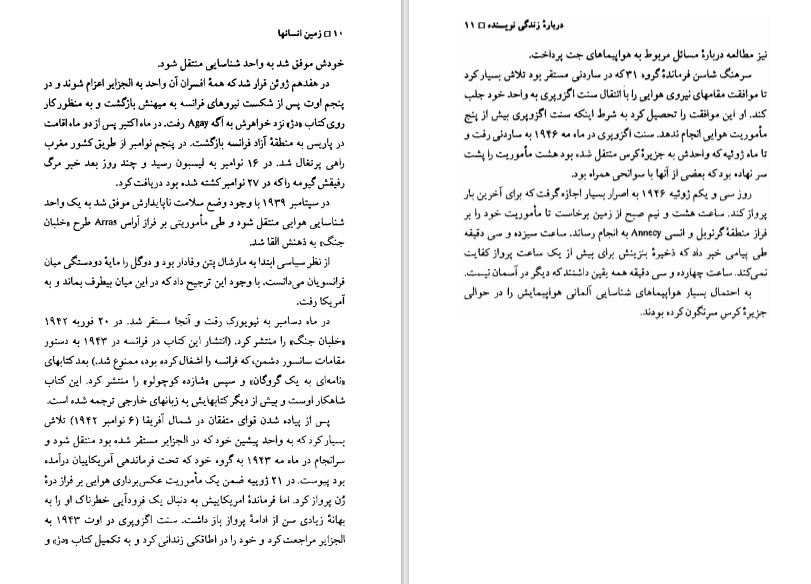 ۱۰ □ زمین انسانها
خودش موفق شد به واحد شناسایی منتقل شود.
در هفدهم ژوئن قرار شد که همهٔ افسران آن واحد به الجزایر اعزام شوند و در
پنجم اوت پس از شکست نیروهای فرانسه به میهنش بازگشت و به منظور کار
روی کتاب «دژ» نزد خواهرش به آگه Agay رفت. در ماه اکتبر پس از دو ماه اقامت
در پاریس به منطقهٔ آزاد فرانسه بازگشت. در پنجم نوامبر از طریق کشور مغرب
راهی پرتغال شد. در ۱۶ نوامبر به لیسبون رسید و چند روز بعد خبر مرگ
رفیقش گیومه را که در ۲۷ نوامبر کشته شده بود دریافت کرد.
در سپتامبر ۱۹۳۹ با وجود وضع سلامت ناپایدارش موفق شد به یک واحد
شناسایی هوایی منتقل شود و طی مأموریتی بر فراز آراس Arras طرح «خلبان
جنگ» به ذهنش القا شد.
از نظر سیاسی ابتدا به مارشال پتن وفادار بود و دوگل را مایهٔ دودستگی میان
فرانسویان می‌دانست. با وجود این ترجیح داد که در این میان بیطرف بماند و به
آمریکا رفت.
در ماه دسامبر به نیویورک رفت و آنجا مستقر شد. در ۲۰ فوریه ۱۹۴۲
«خلبان جنگ» را منتشر کرد. (انتشار این کتاب در فرانسه در ۱۹۴۳ به دستور
مقامات سانسور دشمن، که فرانسه را اشغال کرده بود، ممنوع شد.) بعد کتابهای
«نامه‌ای به یک گروگان» و سپس «شازده کوچولو» را منتشر کرد. این کتاب
شاهکار اوست و بیش از دیگر کتابهایش به زبانهای خارجی ترجمه شده است.
پس از پیاده شدن قوای متفقان در شمال آفریقا (۶ نوامبر ۱۹۴۲) تلاش
بسیار کرد که به واحد پیشین خود که در الجزایر مستقر شده بود منتقل شود و
سرانجام در ماه مه ۱۹۴۳ به گروه خود که تحت فرماندهی آمریکاییان درآمده
بود پیوست. در ۲۱ ژوییه ضمن یک مأموریت عکس‌برداری هوایی بر فراز درهٔ
ژن پرواز کرد. اما فرماندهٔ امریکاییش به دنبال یک فرودآیی خطرناک او را به
بهانهٔ زیادی سن از ادامهٔ پرواز باز داشت. سنت اگزوپری در اوت ۱۹۴۳ به
الجزایر مراجعت کرد و خود را در اطاقکی زندانی کرد و به تکمیل کتاب «دژ» و
دربارهٔ زندگی نویسنده □ ۱۱
نیز مطالعه دربارهٔ مسائل مربوط به هواپیماهای جت پرداخت.
سرهنگ شاسن فرماندهٔ گروه ۳۱ که در ساردنی مستقر بود تلاش بسیار کرد
تا موافقت مقامهای نیروی هوایی را با انتقال سنت اگزوپری به واحد خود جلب
کند. او این موافقت را تحصیل کرد به شرط اینکه سنت اگزوپری بیش از پنج
مأموریت هوایی انجام ندهد. سنت اگزوپری در ماه مه ۱۹۴۶ به ساردنی رفت و
تا ماه ژوئیه که واحدش به جزیرهٔ کرس منتقل شده بود هشت مأموریت را پشت
سر نهاده بود که بعضی از آنها با سوانحی همراه بود.
روز سی و یکم ژوئیه ۱۹۴۶ به اصرار بسیار اجازه گرفت که برای آخرین بار
پرواز کند. ساعت هشت و نیم صبح از زمین برخاست تا مأموریت خود را بر
فراز منطقهٔ گرنوبل و انسی Annecy به انجام رساند. ساعت سیزده و سی دقیقه
طی پیامی خبر داد که ذخیرهٔ بنزینش برای بیش از یک ساعت پرواز کفایت
نمی‌کند. ساعت چهارده و سی دقیقه همه یقین داشتند که دیگر در آسمان نیست.
به احتمال بسیار هواپیماهای شناسایی آلمانی هواپیمایش را در حوالی
جزیرهٔ کرس سرنگون کرده بودند.